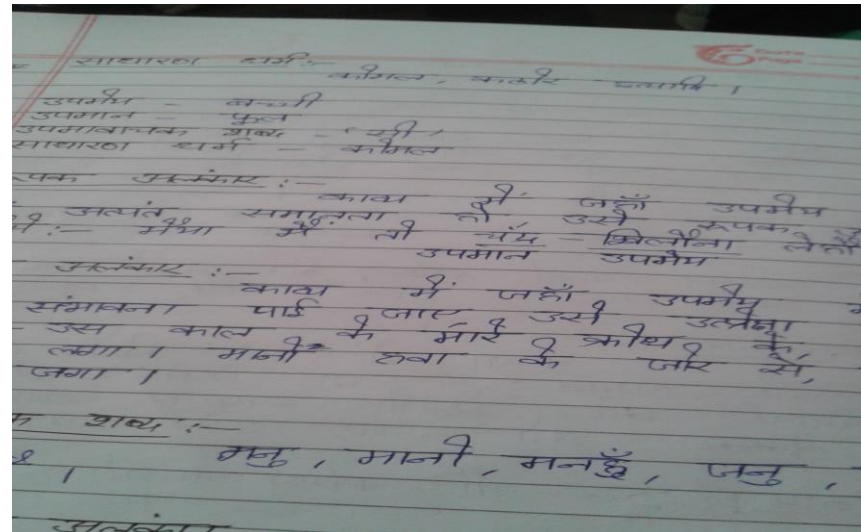 साधारण धर्म :-
कोमल, कठोर इत्यादि ।
उपमेय - बच्ची
उपमान - फूल
उपमावाचक शब्द - 'सी'
साधारण धर्म - कोमल
पक अलंकार :-
काव्य में जहाँ उपमेय
अत्यंत समानता हो उसे रूपक
:- मैया मैं तो चंद्र - खिलौना लेहौं
उपमान उपमेय
अलंकार :-
काव्य में जहाँ उपमेय
संभावना पाई जाए उसे उत्प्रेक्षा
उस काल के मारे क्रोध के,
लगा । मानो हवा के जोर से,
जगा ।
क शब्द :-
मनु, मानो, मनहुँ, जनु,
।
अलंकार